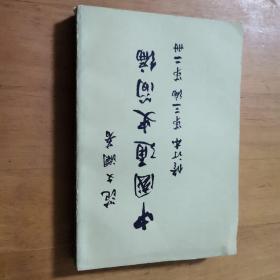 范文澜著
中国通史简编
修订本 第三编 第二册